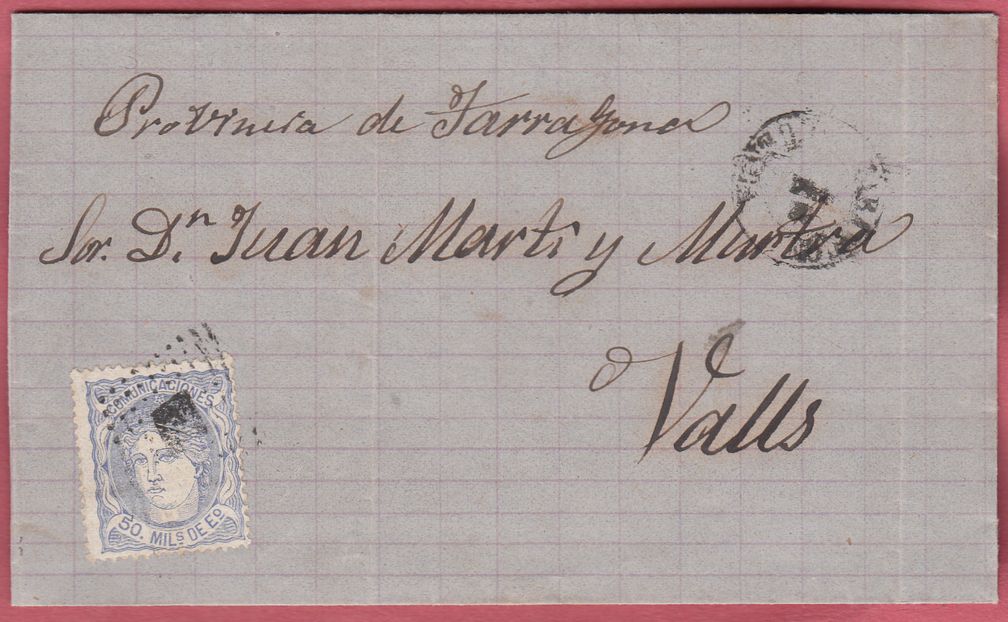 Provincia de Tarragona
Sor. Dn. Juan Marti y Martra
Valls
COMUNICACIONES
50. MILS DE Eo.